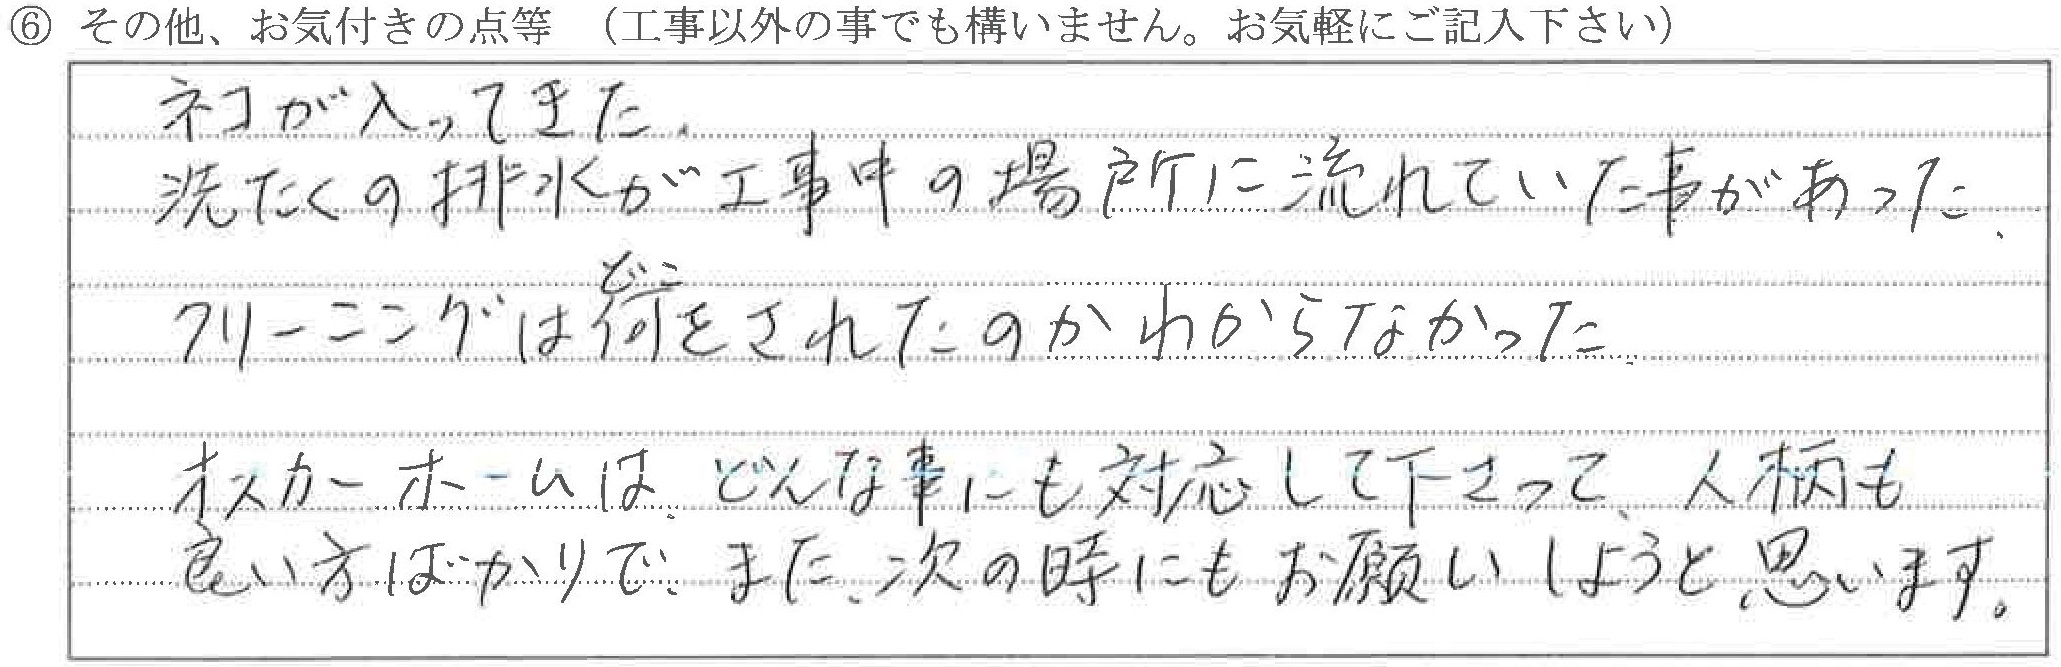 ⑥ その他、お気付きの点等 （工事以外の事でも構いません。お気軽にご記入下さい）
ネコが入ってきた、
洗たくの排水が工事中の場所に流れていた事があった、
どこ
クリーニングは をされたのかわからなかった、
オスカーホームは、どんな事にも対応して下さって、人柄も
良い方ばかりで、また、次の時にもお願いしようと思います。